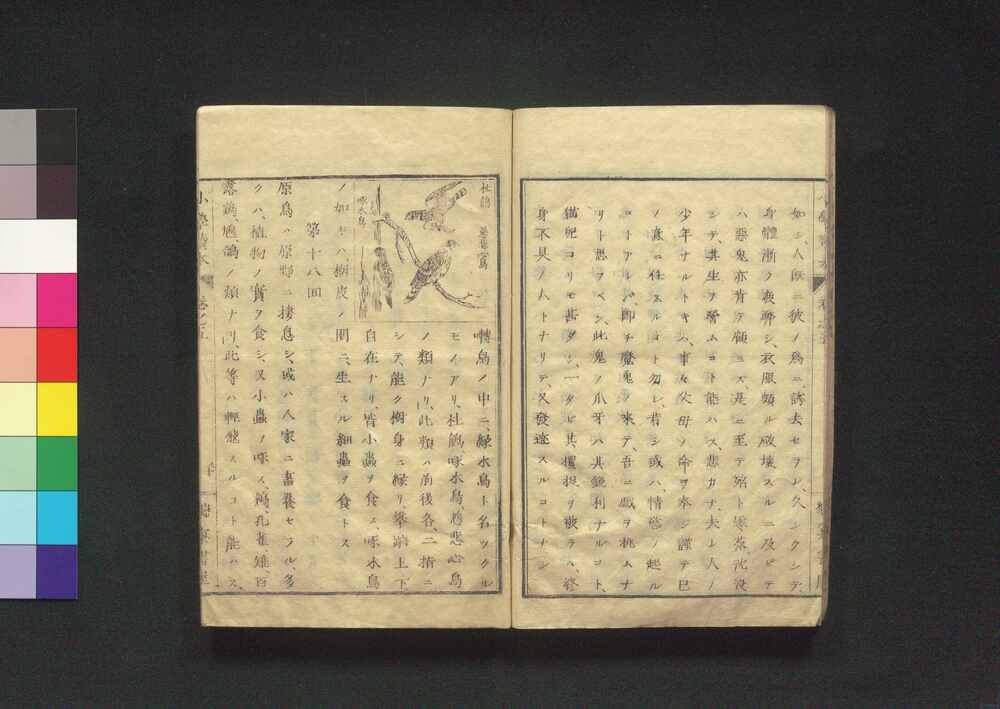 如シ、人既ニ彼ノ為ニ、誘去セラレ、久シクシテ、
身體漸ク疲弊シ、衣服頗ル破壊スルニ及ビテ
ハ惡鬼亦肯テ顧ミス、是ニ至テ殆ト零落、沈没
シテ、其生ヲ營ムコト能ハス、悲カナ、夫レ人ノ
少年ナルトキハ、事々父母ノ命ヲ奉シ、謹テ己
ノ意ニ任スルコト勿レ、若シ或ハ、情慾ノ起ル
コトアレハ、即チ魔鬼ノ來テ、吾ニ戯ヲ挑ムナ
リト思フベシ、此鬼ノ爪牙ハ其鋭利ナルコト、
猫兒ヨリモ甚タシ、一タビ其攫捉ヲ被ラハ、終
身不具ノ人トナリテ、又發達スルコトナシ
杜鵑
慈悲心鳥
啄木鳥
囀鳥ノ中ニ、緑木鳥ト名ツクル
モノアリ、杜鵑、啄木鳥、慈悲心鳥
ノ類ナリ、此類ハ前後各、二指ニ
シテ、能ク樹身ニ縁リ、攀躋上下、
自在ナリ、皆小蟲ヲ食ス、啄木鳥
ノ如キハ、樹皮ノ間ニ、生スル細蟲ヲ食トス
第十八回
原鳥ハ、原野ニ棲息シ、或ハ人家ニ畜養セラル、多
クハ、植物ノ實ヲ食シ、又小蟲ヲ啄ム、鶏、孔雀、雉、百
落鶏、鳩鴿ノ類ナリ、此等ハ輕飛スルコト能ハス、
小學讀本
巻之五